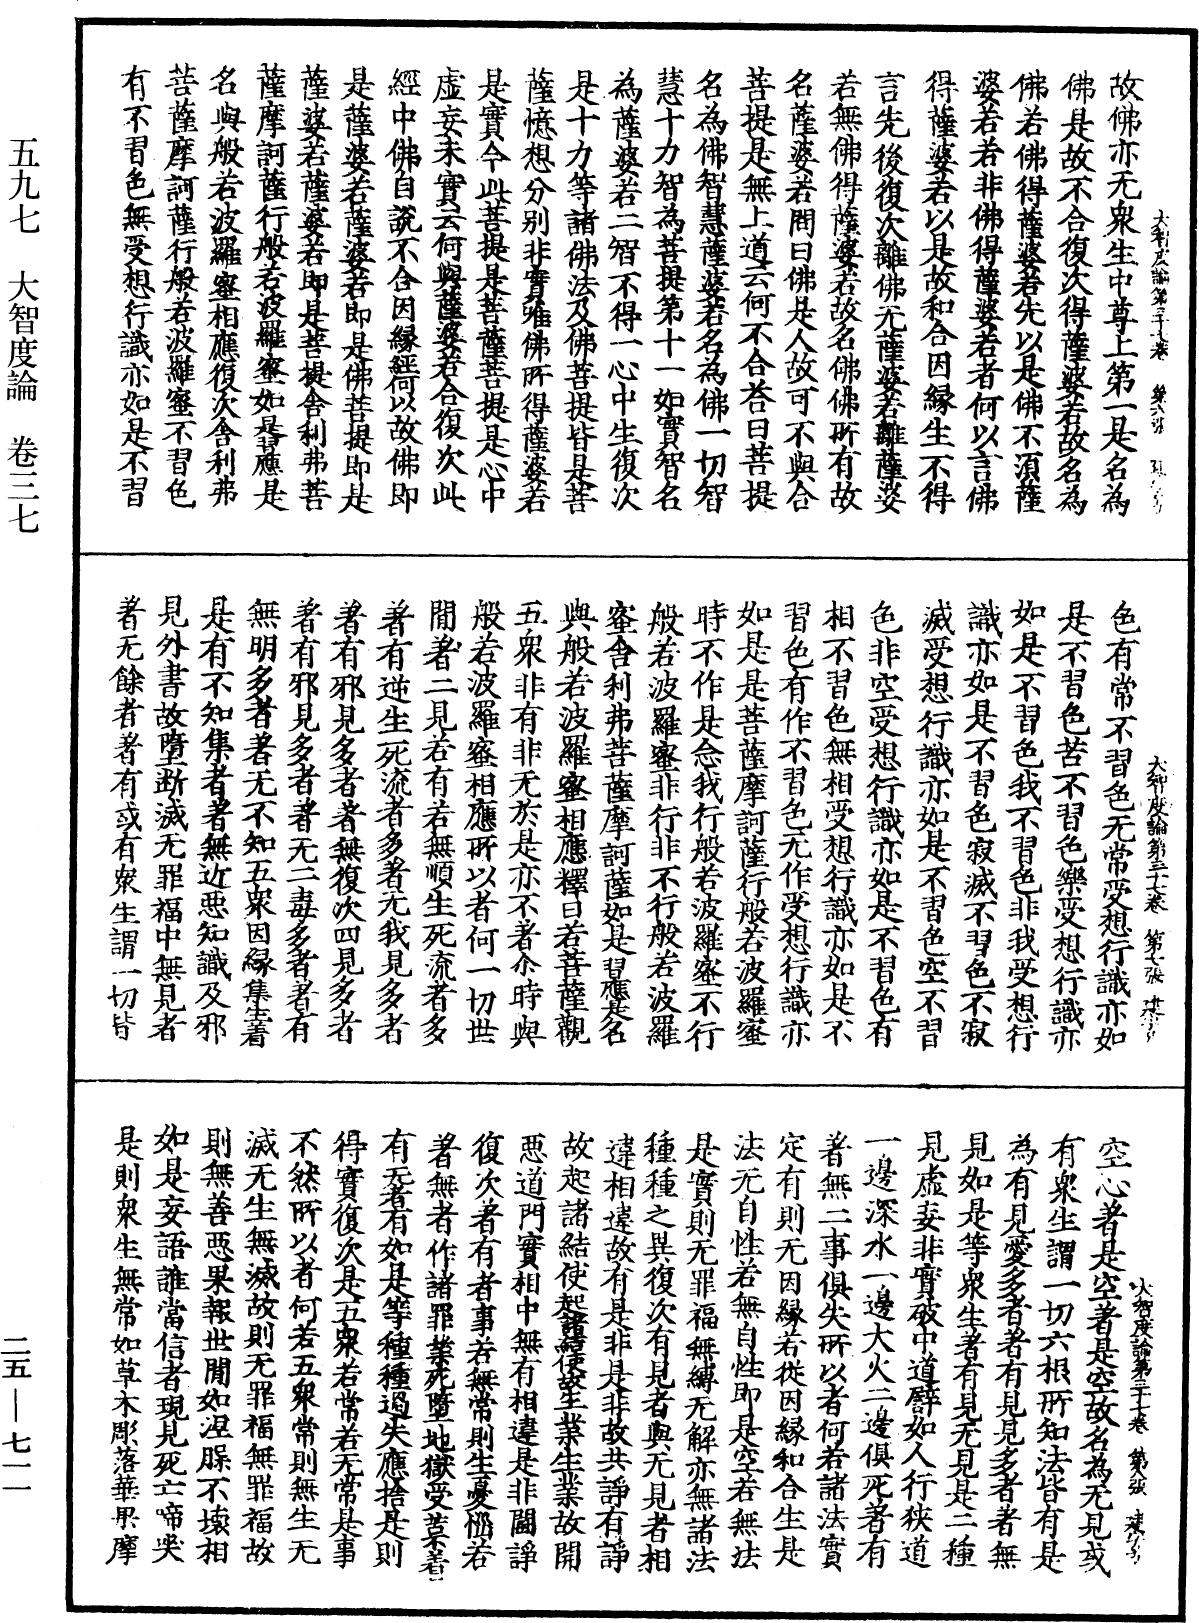 大智度論第三十七卷 第六張
故佛亦无衆生中尊上第一是名為
佛是故不合復次得薩婆若故名為
佛若佛得薩婆若先以是佛不須薩
婆若若非佛得薩婆若者何以言佛
得薩婆若以是故和合因緣生不得
言先後復次離佛无薩婆若離薩婆
若無佛得薩婆若故名佛佛所有故
名薩婆若問曰佛是人故可不與合
菩提是無上道云何不合荅曰菩提
名為佛智慧薩婆若名為佛一切智
慧十力智為菩提第十一如實智名
為薩婆若二智不得一心中生復次
是十力等諸佛法及佛菩提皆是菩
薩憶想分別非實唯佛所得薩婆若
是實今此菩提是菩薩菩提是心中
虛妄未實云何與薩婆若合復次此
經中佛自說不合因緣經何以故佛即
是薩婆若薩婆若即是佛菩提即是
薩婆若薩婆若即是菩提舍利弗菩
薩摩訶薩行般若波羅蜜如是習應是
名與般若波羅蜜相應復次舍利弗
菩薩摩訶薩行般若波羅蜜不習色
有不習色無受想行識亦如是不習
大智度論第三十七卷 第七張
色有常不習色无常受想行識亦如
是不習色苦不習色樂受想行識亦
如是不習色我不習色非我受想行
識亦如是不習色寂滅不習色不寂
滅受想行識亦如是不習色空不習
色非空受想行識亦如是不習色有
相不習色無相受想行識亦如是不
習色有作不習色无作受想行識亦
如是是菩薩摩訶薩行般若波羅蜜
時不作是念我行般若波羅蜜不行
般若波羅蜜非行非不行般若波羅
蜜舍利弗菩薩摩訶薩如是習應是名
與般若波羅蜜相應釋曰若菩薩觀
五衆非有非无於是亦不著尒時與
般若波羅蜜相應所以者何一切世
閒著二見若有若無順生死流者多
著有逆生死流者多著无我見多者
著有邪見多者著無復次四見多者
著有邪見多者著无二毒多者著有
無明多者著无不知五衆因緣集生著
是有不知集者著無近惡知識及邪
見外書故墮斷滅无罪福中無見者
著无餘者著有或有衆生謂一切皆
大智度論第三十七卷 第八張
空心著是空著是空故名為无見或
有衆生謂一切六根所知法皆有是
為有見愛多者著有見見多者著無
見如是等衆生著有見无見是二種
見虛妄非實破中道譬如人行狹道
一邊深水一邊大火二邊俱死著有
著無二事俱失所以者何若諸法實
定有則无因緣若從因緣和合生是
法无自性若無自性即是空若無法
是實則无罪福無縛无解亦無諸法
種種之異復次有見者與无見者相
違相違故有是非是非故共諍有諍
故起諸結使起諸結使故生業生業故開
惡道門實相中無有相違是非鬪諍
復次著有者事若無常則生憂惱若
著無者作諸罪業死墮地獄受苦不著
有无者有如是等種種過失應捨是則
得實復次是五衆若常若无常是事
不然所以者何若五衆常則無生无
滅无生無滅故則无罪福無罪福故
則無善惡果報世閒如涅槃不壞相
如是妄語誰當信者現見死亡啼哭
是則衆生無常如草木彫落華果摩
五九七 大智度論 卷三七
二五—七一一